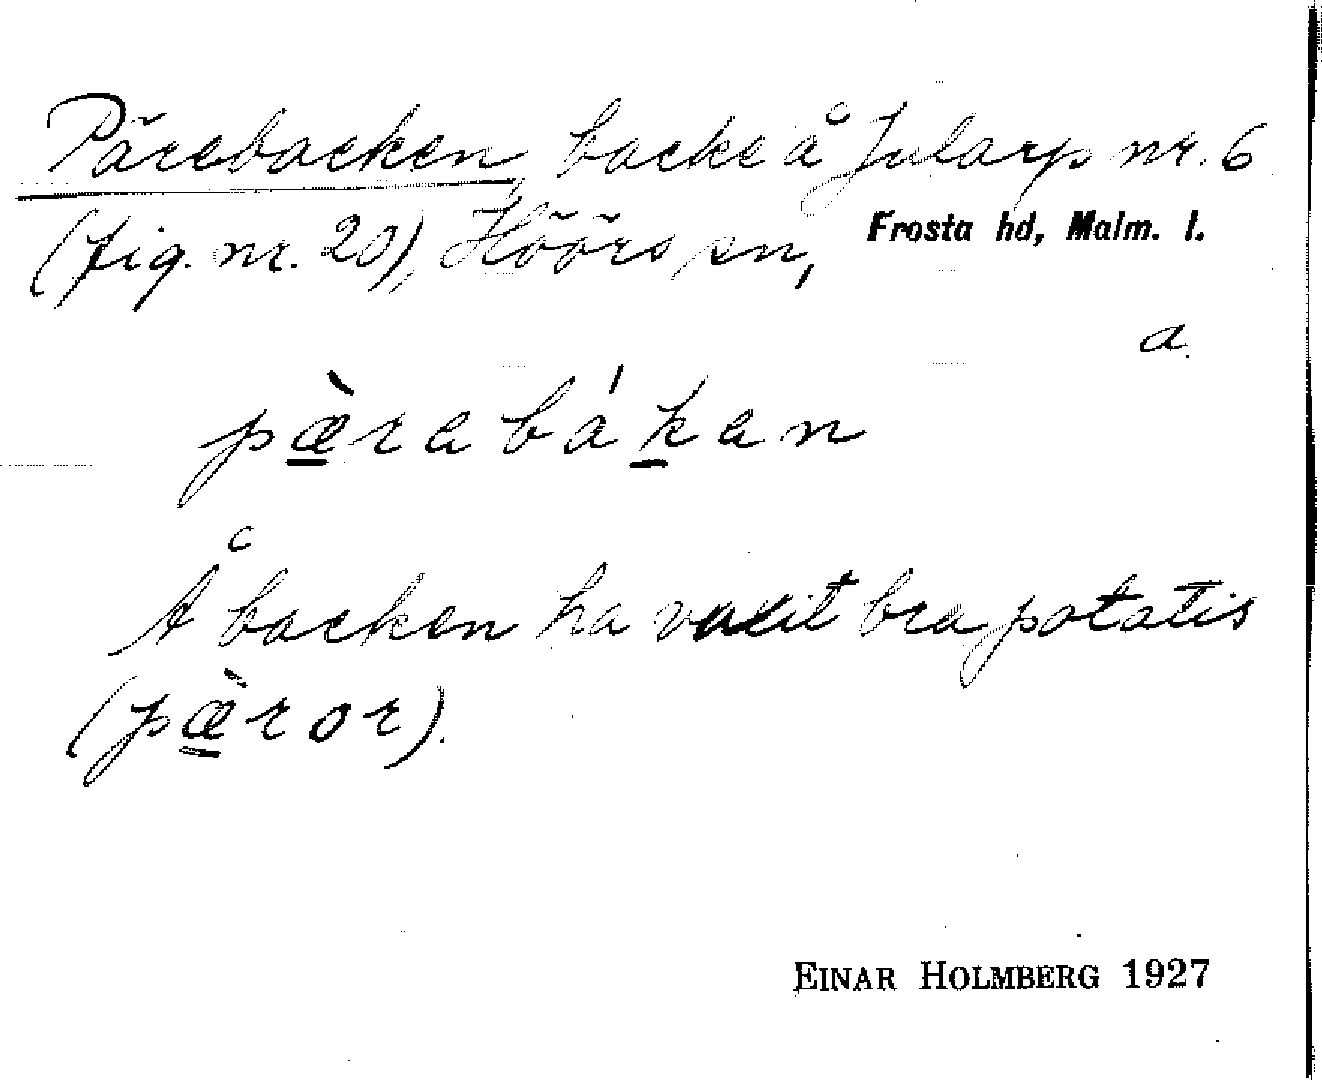 Pärebacken, backe å Jularp nr. 6
(fig. nr. 20), Höörs sn, Frosta hd, Malm. l.
a.
pæ̀rabákan
Å backen ha vaxit bra potatis
(pæ̀ror).
EINAR HOLMBERG 1927